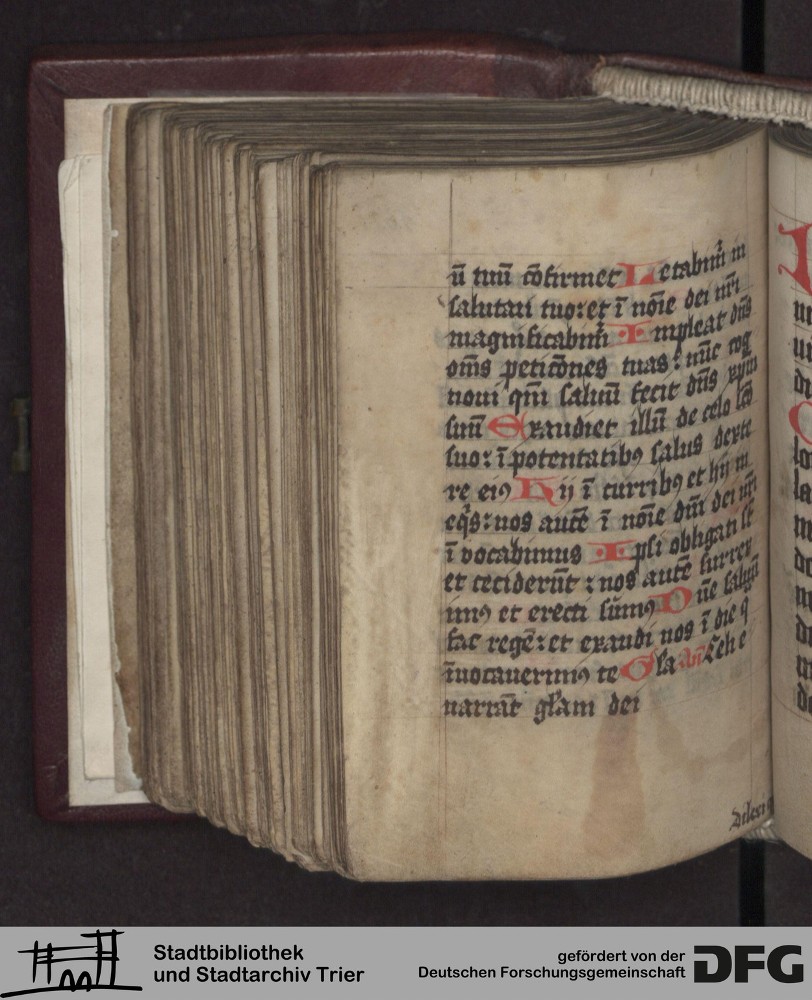 ū tuū cōfirmet Letabim̄ in
salutari tuo: et ī noīe dei nr̄i
magnificabim̄ Impleat dn̄s
om̄s peticōnes tuas: nūc cog
noui qm̄ saluū fecit dn̄s xp̄m
suū Exaudiet illū de celo sc̄o
suo: ī potentatibꝯ salus dexte
re eiꝯ Hij ī curribꝯ et hij in
eq̄s: nos autē ī noīe dn̄i dei nr̄i
ī vocabimus Ipsi obligati st̄
et ceciderūt: nos autē surrex
imꝯ et erecti sūmꝯ Dn̄e saluū
fac regē: et exaudi nos ī die q̄
īuocauerimꝯ te Gla an̄ Celi e
narrāt gl̄am dei
Stadtbibliothek
und Stadtarchiv Trier
gefördert von der
Deutschen Forschungsgemeinschaft
DFG